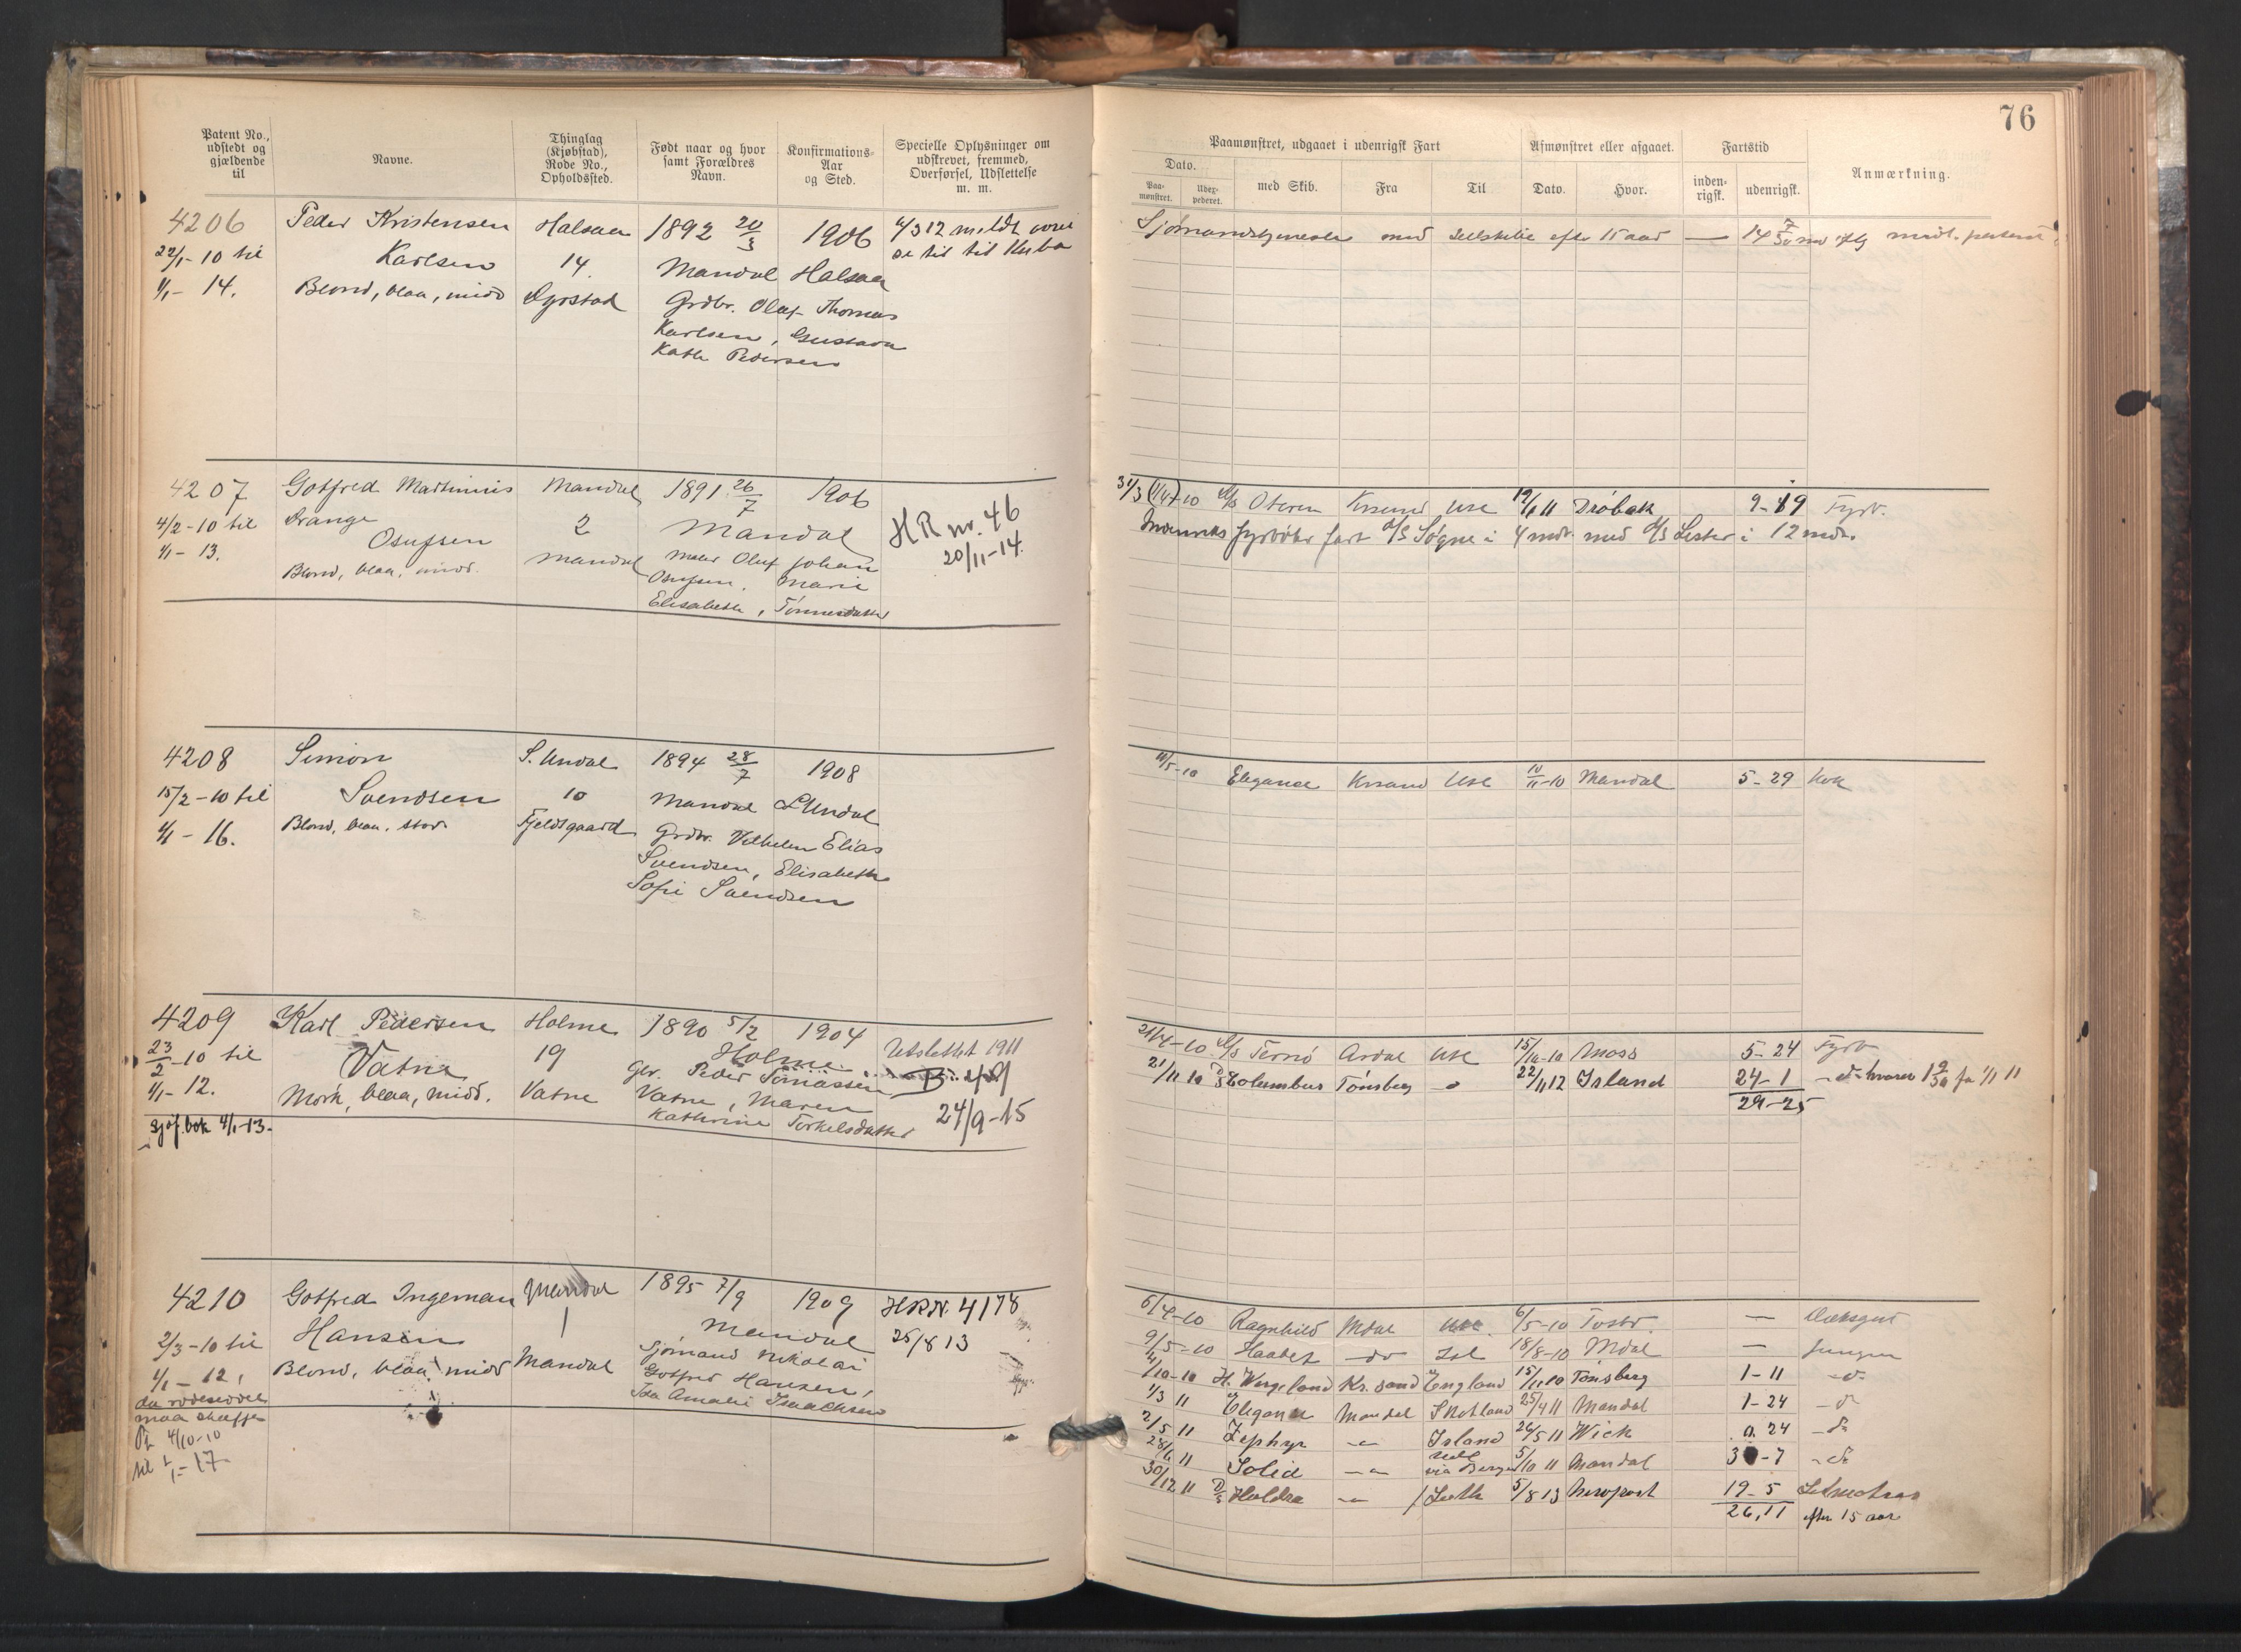 76
Patent No., udstedt og gjældende til
Navne.
Thinglag (Kjøbstad), Rode No., Opholdssted.
Født naar og hvor samt Forældres Navn.
Konfirmations-Aar og Sted.
Specielle Oplysninger om udskrevet, fremmed, Overførsel, Udslettelse m. m.
Paamønstret, udgaaet i udenrigsk Fart
Afmønstret eller afgaaet.
Fartstid
Anmærkning.
Dato.
Paa-mønstret.
Udex-pederet.
med Skib.
Fra
Til
Dato.
Hvor.
inden-rigsk.
udenrigsk.
4206 Peder Kristensen Halsaa 1892 20/3 1906 4/3 12 meldt
22/1-10 til Karlsen 14. Mandal Halsaa til Kuba
1/1-14. Blond, blaa, midd
Grdbr. Olaf Thomas
Karlsen, Gustava
Kath. Pedersen
efter 15 aar — 14
4207 Gotfred Martinius Mandal 1891 26/7 1906
4/2-10 til Drange 2 Mandal HR nr. 46
1/1-13. Osufsen Mandal Oluf Johan 20/11-14.
Blond, blaa, midd.
Osufsen, Marie
Elisabeth, Tønnesdatter
31/3 (1/4)-10 D/S Oteren Krsand Usl 12/1 11 Drøbak 9-19 Fyrb.
fart D/S Søgne i 4 mdr. med D/S Lister i 12 mdr.
4208 Simon S. Undal 1894 28/7 1908
15/2-10 til Svendsen 10 Mandal S Undal
1/1-16. Blond, blaa, stor Fjeldsgaard Grdbr. Vilhelm Elias
Svendsen, Elisabeth
Sofie Svendsen
10/5-10 Elegance Krsand Usl 10/11-10 Mandal 5-29 Kok
4209 Karl Pedersen Holme 1890 5/2 1904 Utslettet 1911
23/2-10 til Vatne 19 Holme
1/1-12. Mørk, blaa, midd. Vatne Peder Tomassen
Vatne, Maren 24/9-15
Kathrine Torkelsdatter
sjøf.bok 4/1-13.
21/4-10 D/S Ternø Ardal Usl 15/10-10 Moss 5-24 Fyrb
21/11 10 D/S Kolumbus Tønsberg 22/11 12 Island 24-1
29-25
4210 Gotfred Ingeman Mandal 1895 7/9 1909 HR Nr. 4178
2/3-10 til Hansen 1 Mandal 25/8 13
1/1-12, Blond, blaa, midd Mandal Sjømand Nikolai
Gotfred Hansen,
Ida Amalie Isaachsen
maa skaffe
4/10-10
til 1/1-17
6/4-10 Ragnhild Mdal Usl. 6/5-10 — Dæksgut
9/5-10 Haabet do Isl 18/8-10 Mdal — Jungm
4/10-10 H. Wergeland Kr.sand England 15/11 10 Tønsberg 1-11 d
1/3 11 Elegance Mandal Skotland 25/4 11 Mandal 1-24 d
2/5 11 Zephyr Island 26/5 11 Wick 0.24 d
28/6 11 Solid Usl via Bergen 5/10 11 Mandal 3-7
30/12 11 D/S Huldra Leith 5/8 13 Newport 19-5 Letmatros
26,11 efter 15 aar